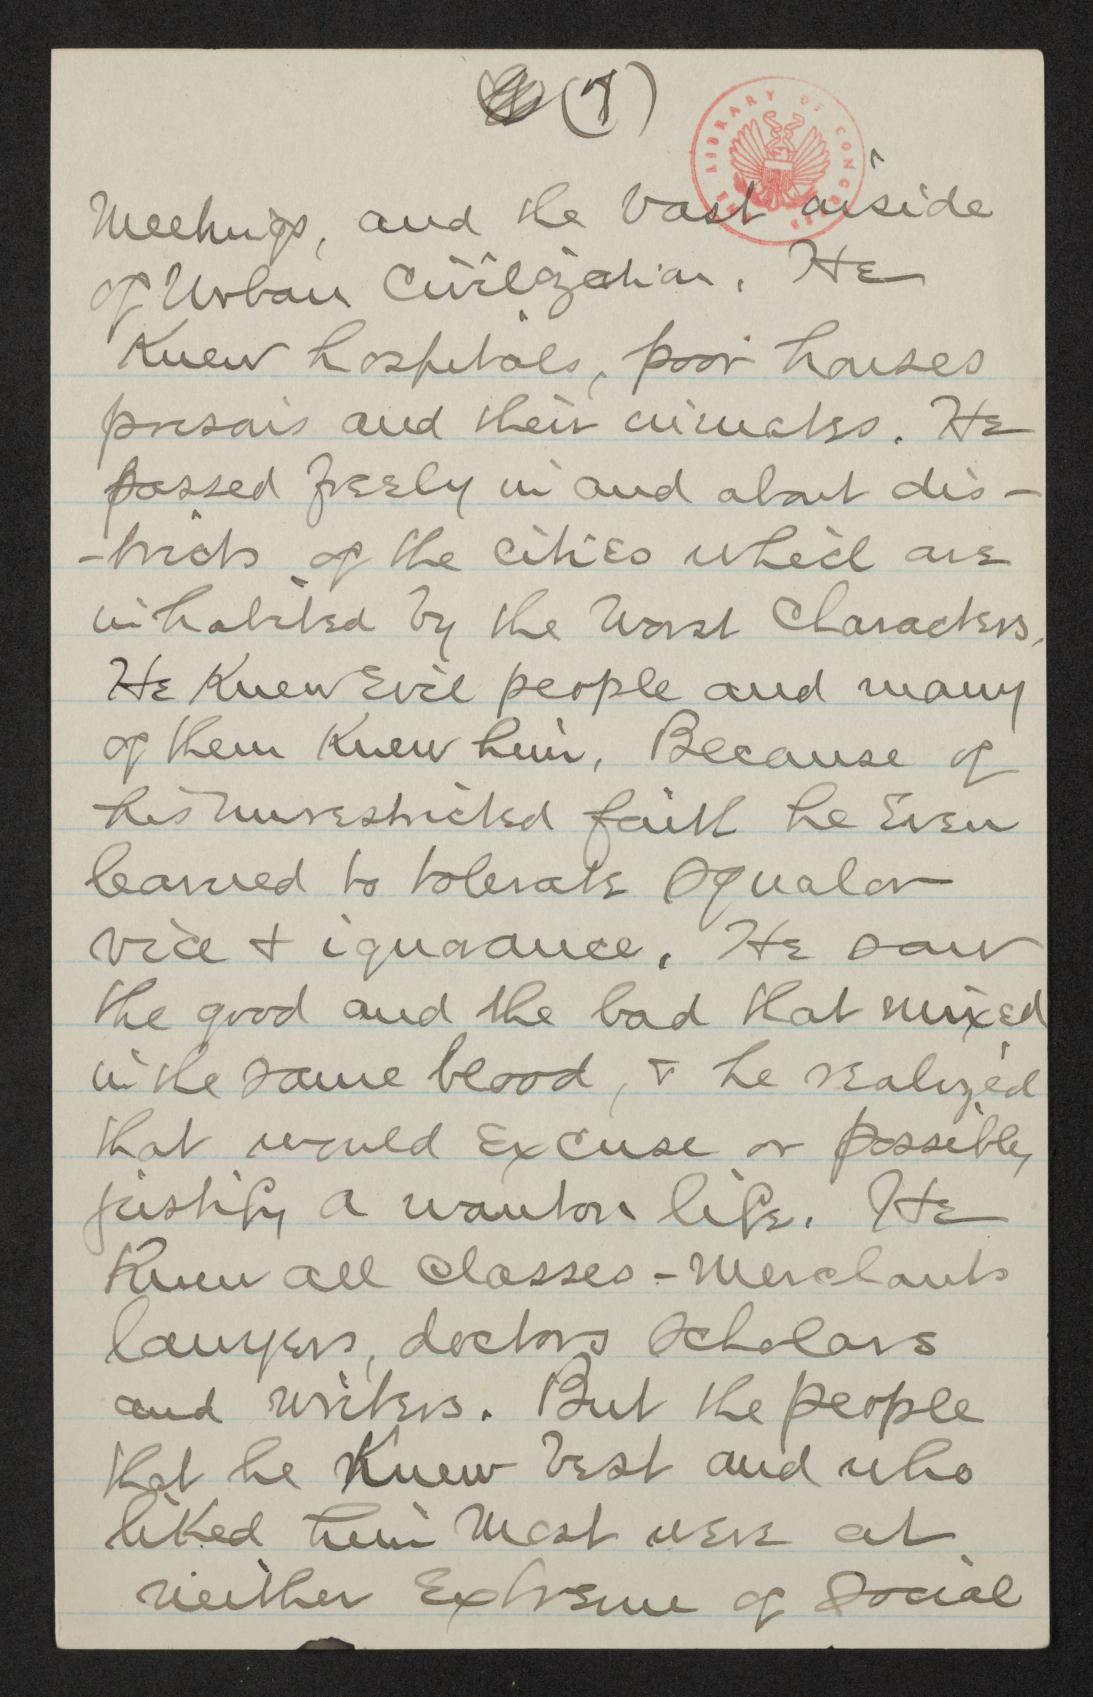 (7)
THE LIBRARY OF CONGRESS
Meetings, and the vast inside
of Urban Civilization. He
Knew hospitals, poor houses
prisons and their inmates. He
passed freely in and about dis-
-tricts of the cities which are
inhabited by the Worst Characters.
He Knew Evil people and many
of them Knew him. Because of
his unrestricted faith he Even
learned to tolerate squalor
vice & ignorance. He saw
the good and the bad that mixed
in the same blood, & he realized
that would Excuse or possibly
justify a wanton life. He
Knew all classes - Merchants
lawyers, doctors scholars
and writers. But the people
that he Knew best and who
liked him Most were at
neither Extreme of social